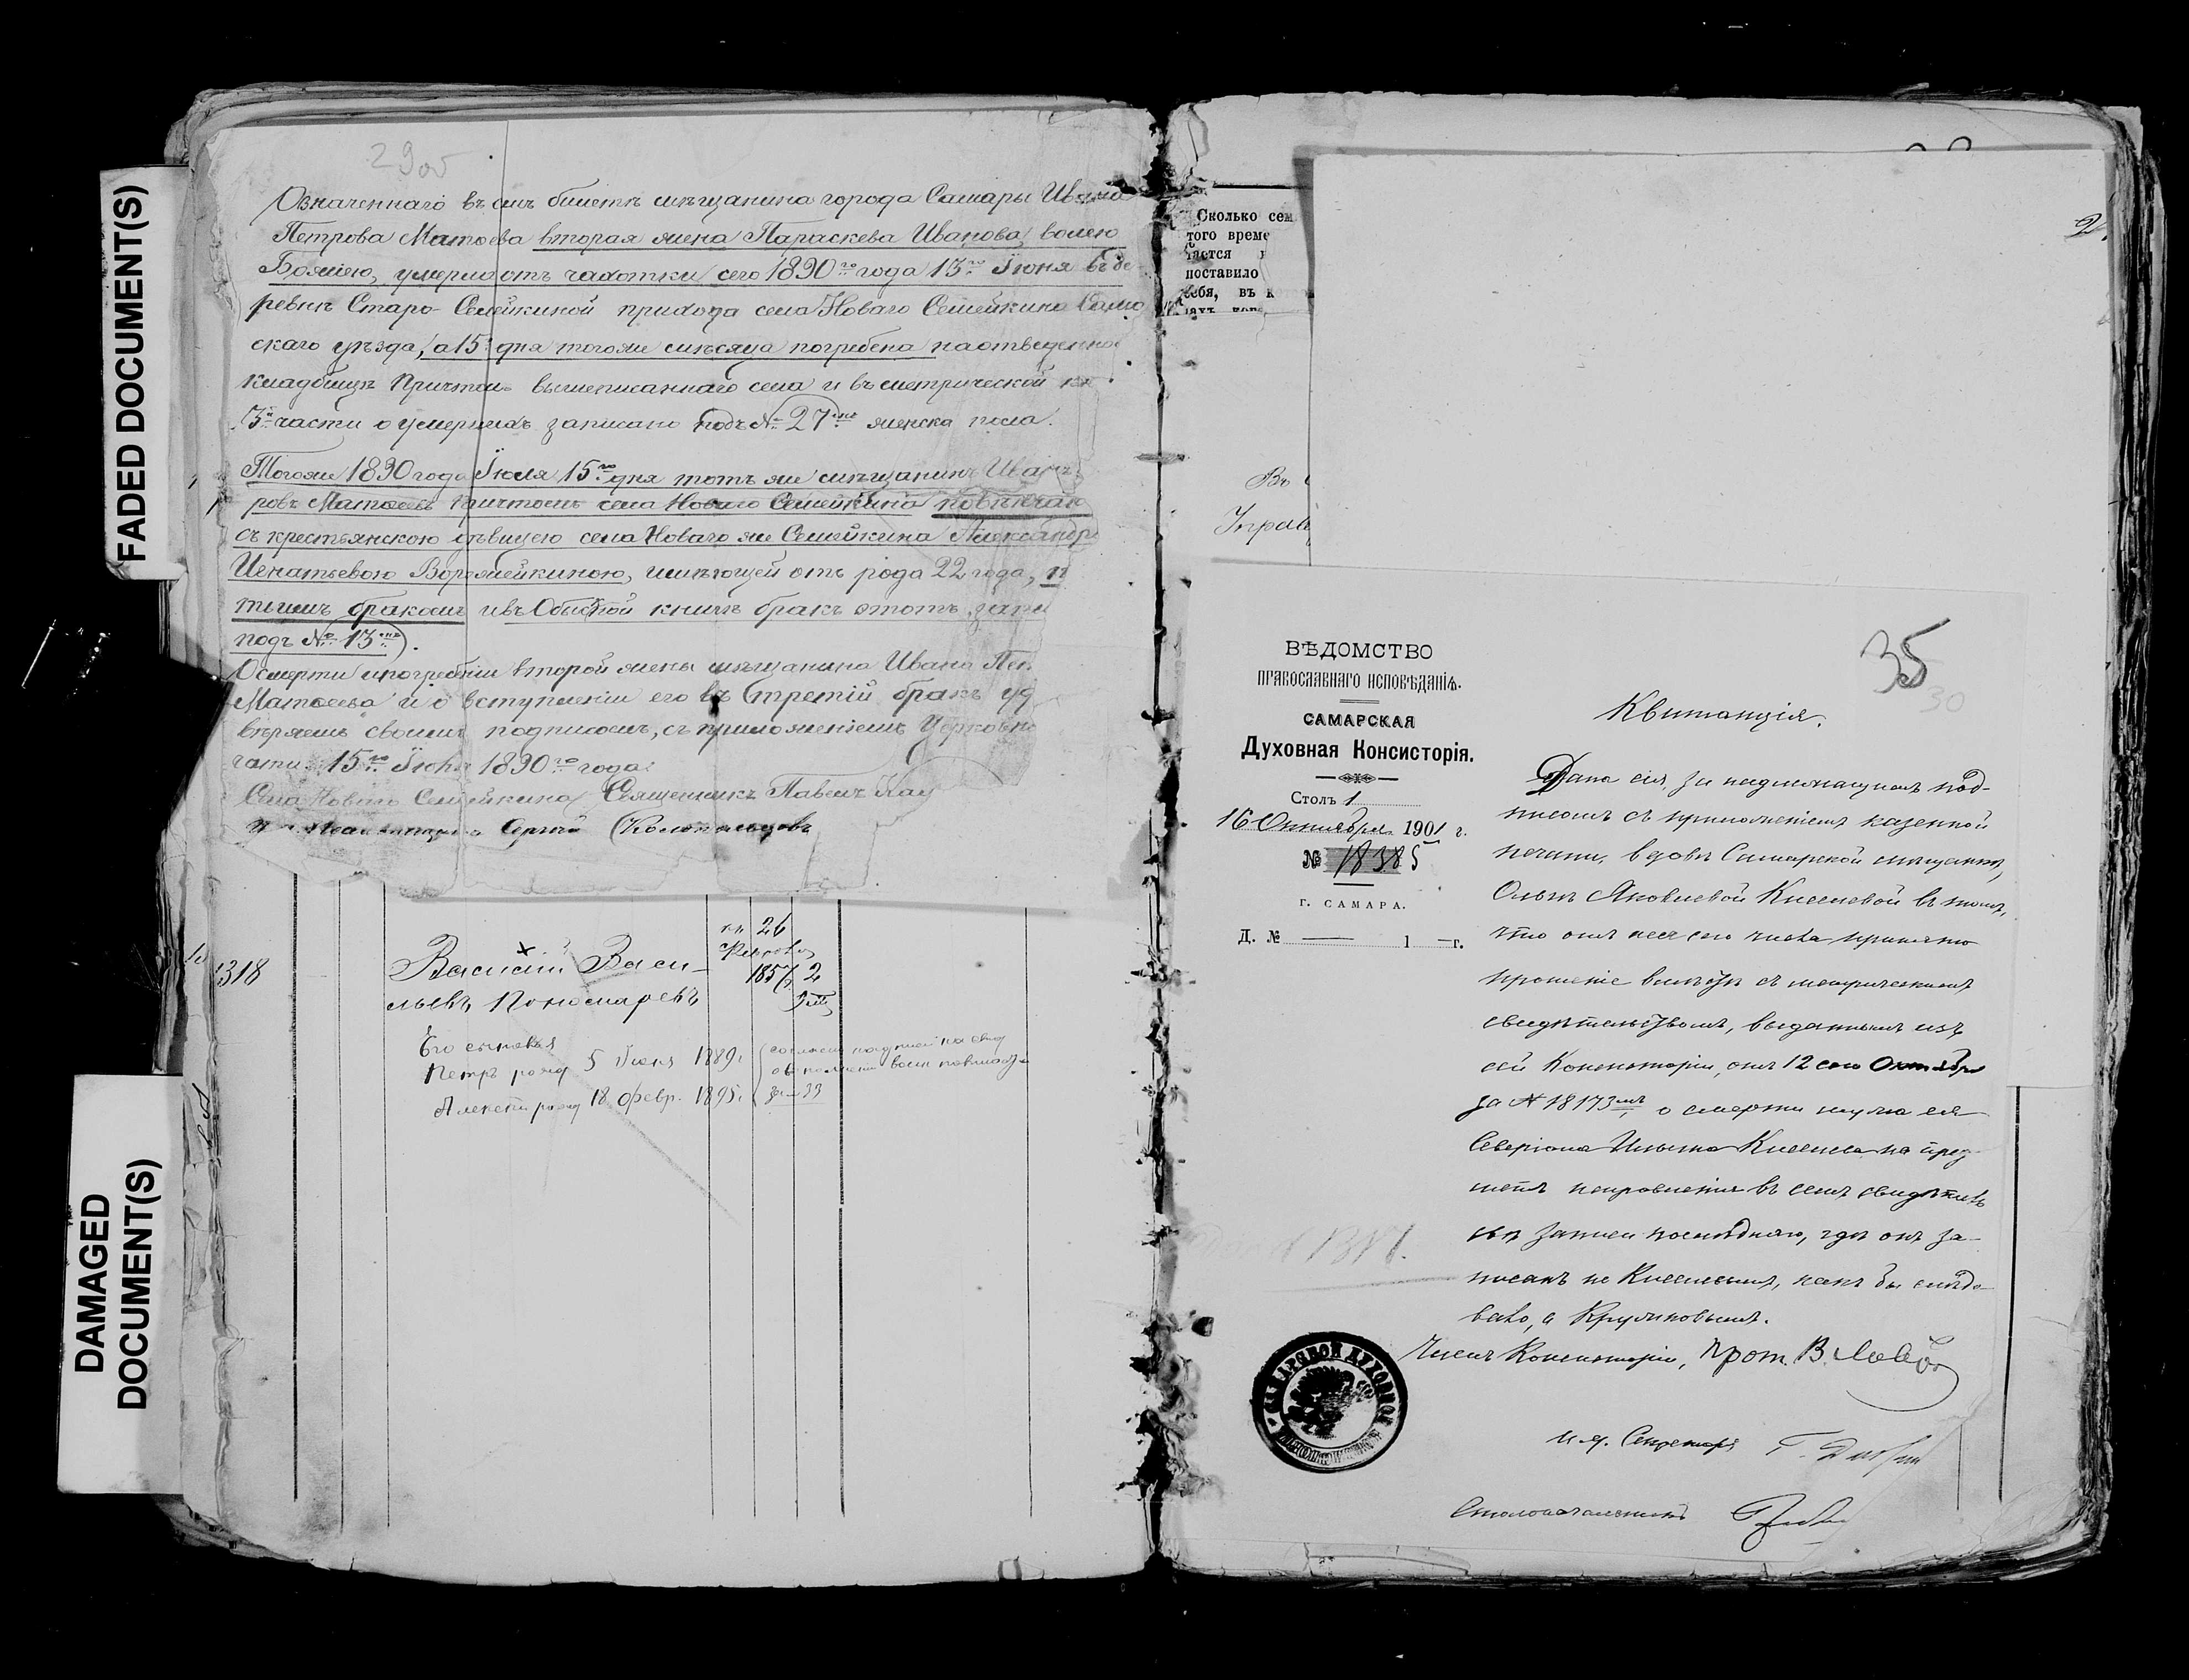 FADED DOCUMENT(S)
DAMAGED
DOCUMENT(S)
29об
Означеннаго въ семъ билетѣ мѣщанина города Самары Ивана
Петрова Матвѣева вторая жена Параскева Иванова, волею
Божіею, умерла отъ чахотки сего 1890го года 13го Іюня въ де
ревнѣ Старо-Семейкиной прихода села Новаго Семейкина Самар
скаго уѣзда, а 15 дня того же мѣсяца погребена на отведенно
кладбищѣ Причтомъ вышеписаннаго села и въ метрической кн
3й части о умершихъ записано подъ № 27мъ женска пола.
Того же 1890 года Іюля 15го дня тотъ же мѣщанинъ Иванъ
ровъ Матвѣевъ Причтомъ села Новаго Семейкина повѣнчан
съ крестьянскою дѣвицею села Новаго же Семейкина Александр
Игнатьевою Ворожейкиною, имѣющей отъ рода 22 года, п
тьимъ бракомъ и въ Обыскной книгѣ бракъ этотъ запи
подъ № 13мъ.
О смерти и погребеніи второй жены мѣщанина Ивана Пет
Матвѣева и о вступленіи его въ третій бракъ уд
вѣряемъ своимъ подписомъ, съ приложеніемъ Церковно
чати. 15го Іюля 1890го года.
Села Новаго Семейкина Священникъ Павелъ
Сергѣй Колокольцовъ
318
Василій Васи-
льевъ Пономаревъ
26
Февраля
1857
2
Его сыновья
Петръ рожд 5 Іюня 1889г.
Алексѣй рожд 18 февр. 1895г.
Сколько сем
того време
ляется
поставило
себя, въ к
Въ
Управ
ВѢДОМСТВО
ПРАВОСЛАВНАГО ИСПОВѢДАНІЯ.
САМАРСКАЯ
Духовная Консисторія.
Столъ 1
16 Октября 1901 г.
№ 18385
г. САМАРА.
Д. № — 1 — г.
35
30
Квитанція.
Дана сія, за надлежащимъ под-
писомъ съ приложеніемъ казенной
печати, вдовѣ Самарской мѣщанкѣ,
Ольгѣ Яковлевой Киселевой въ томъ,
что отъ нея сего числа принято
прошеніе вмѣстѣ съ метрическимъ
свидѣтельствомъ, выданнымъ изъ
сей Консисторіи, отъ 12 сего Октября
за № 18173мъ, о смерти мужа ея
Северіана Ильина Киселева на пред-
метъ исправленія въ семъ свидѣтель
ствѣ записи послѣдняго, гдѣ онъ за-
писанъ не Киселевымъ, какъ бы слѣдо-
вало, а Кружиковымъ.
Членъ Консисторіи, Прот. В. Лавр
И. д. Секретаря
Столоначальникъ